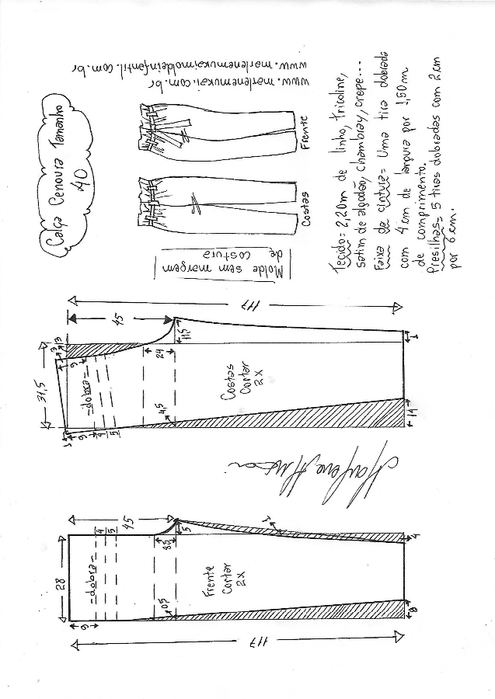 Calça Cenoura Tamanho
40
www.marlenemukai.com.br
www.marlenemukaimoldeinfantil.com.br
Frente
Costas
Molde sem margem
de costura
Tecido= 2,20m de linho, tricoline,
satim de algodão, chambray, crepe...
Faixa de cintura= Uma tira dobrada
com 4cm de largura por 1,50m
de comprimento.
Presilhas= 5 tiras dobradas com 2cm
por 6cm.
117
45
11,5
24
31,5
3
6
-dobra-
4,5
Costas
Cortar
2x
1
14
Marlene Mukai
45
4
5
28
-dobra-
6
5
Frente
Cortar
2x
117